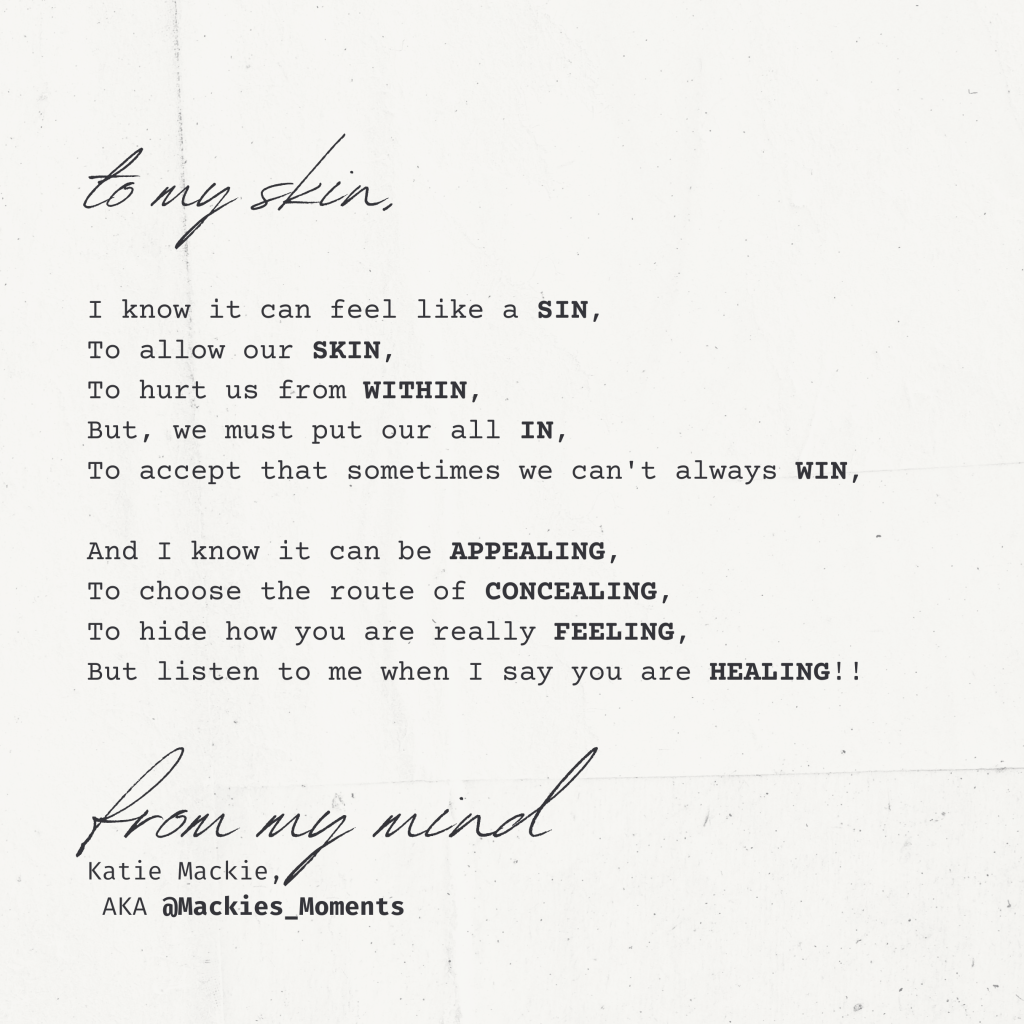 to my skin,
I know it can feel like a SIN,
To allow our SKIN,
To hurt us from WITHIN,
But, we must put our all IN,
To accept that sometimes we can't always WIN,
And I know it can be APPEALING,
To choose the route of CONCEALING,
To hide how you are really FEELING,
But listen to me when I say you are HEALING!!
from my mind
Katie Mackie,
AKA @Mackies_Moments